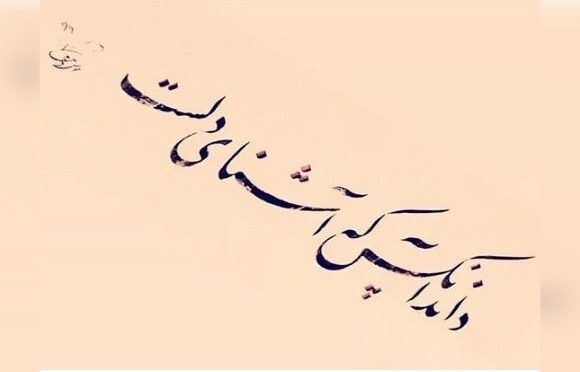 داند آنکس که آشنای دلست